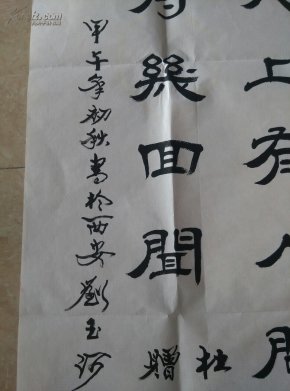 天上有人間
得幾回聞
杜
贈
甲午年初秋書於西安劉玉